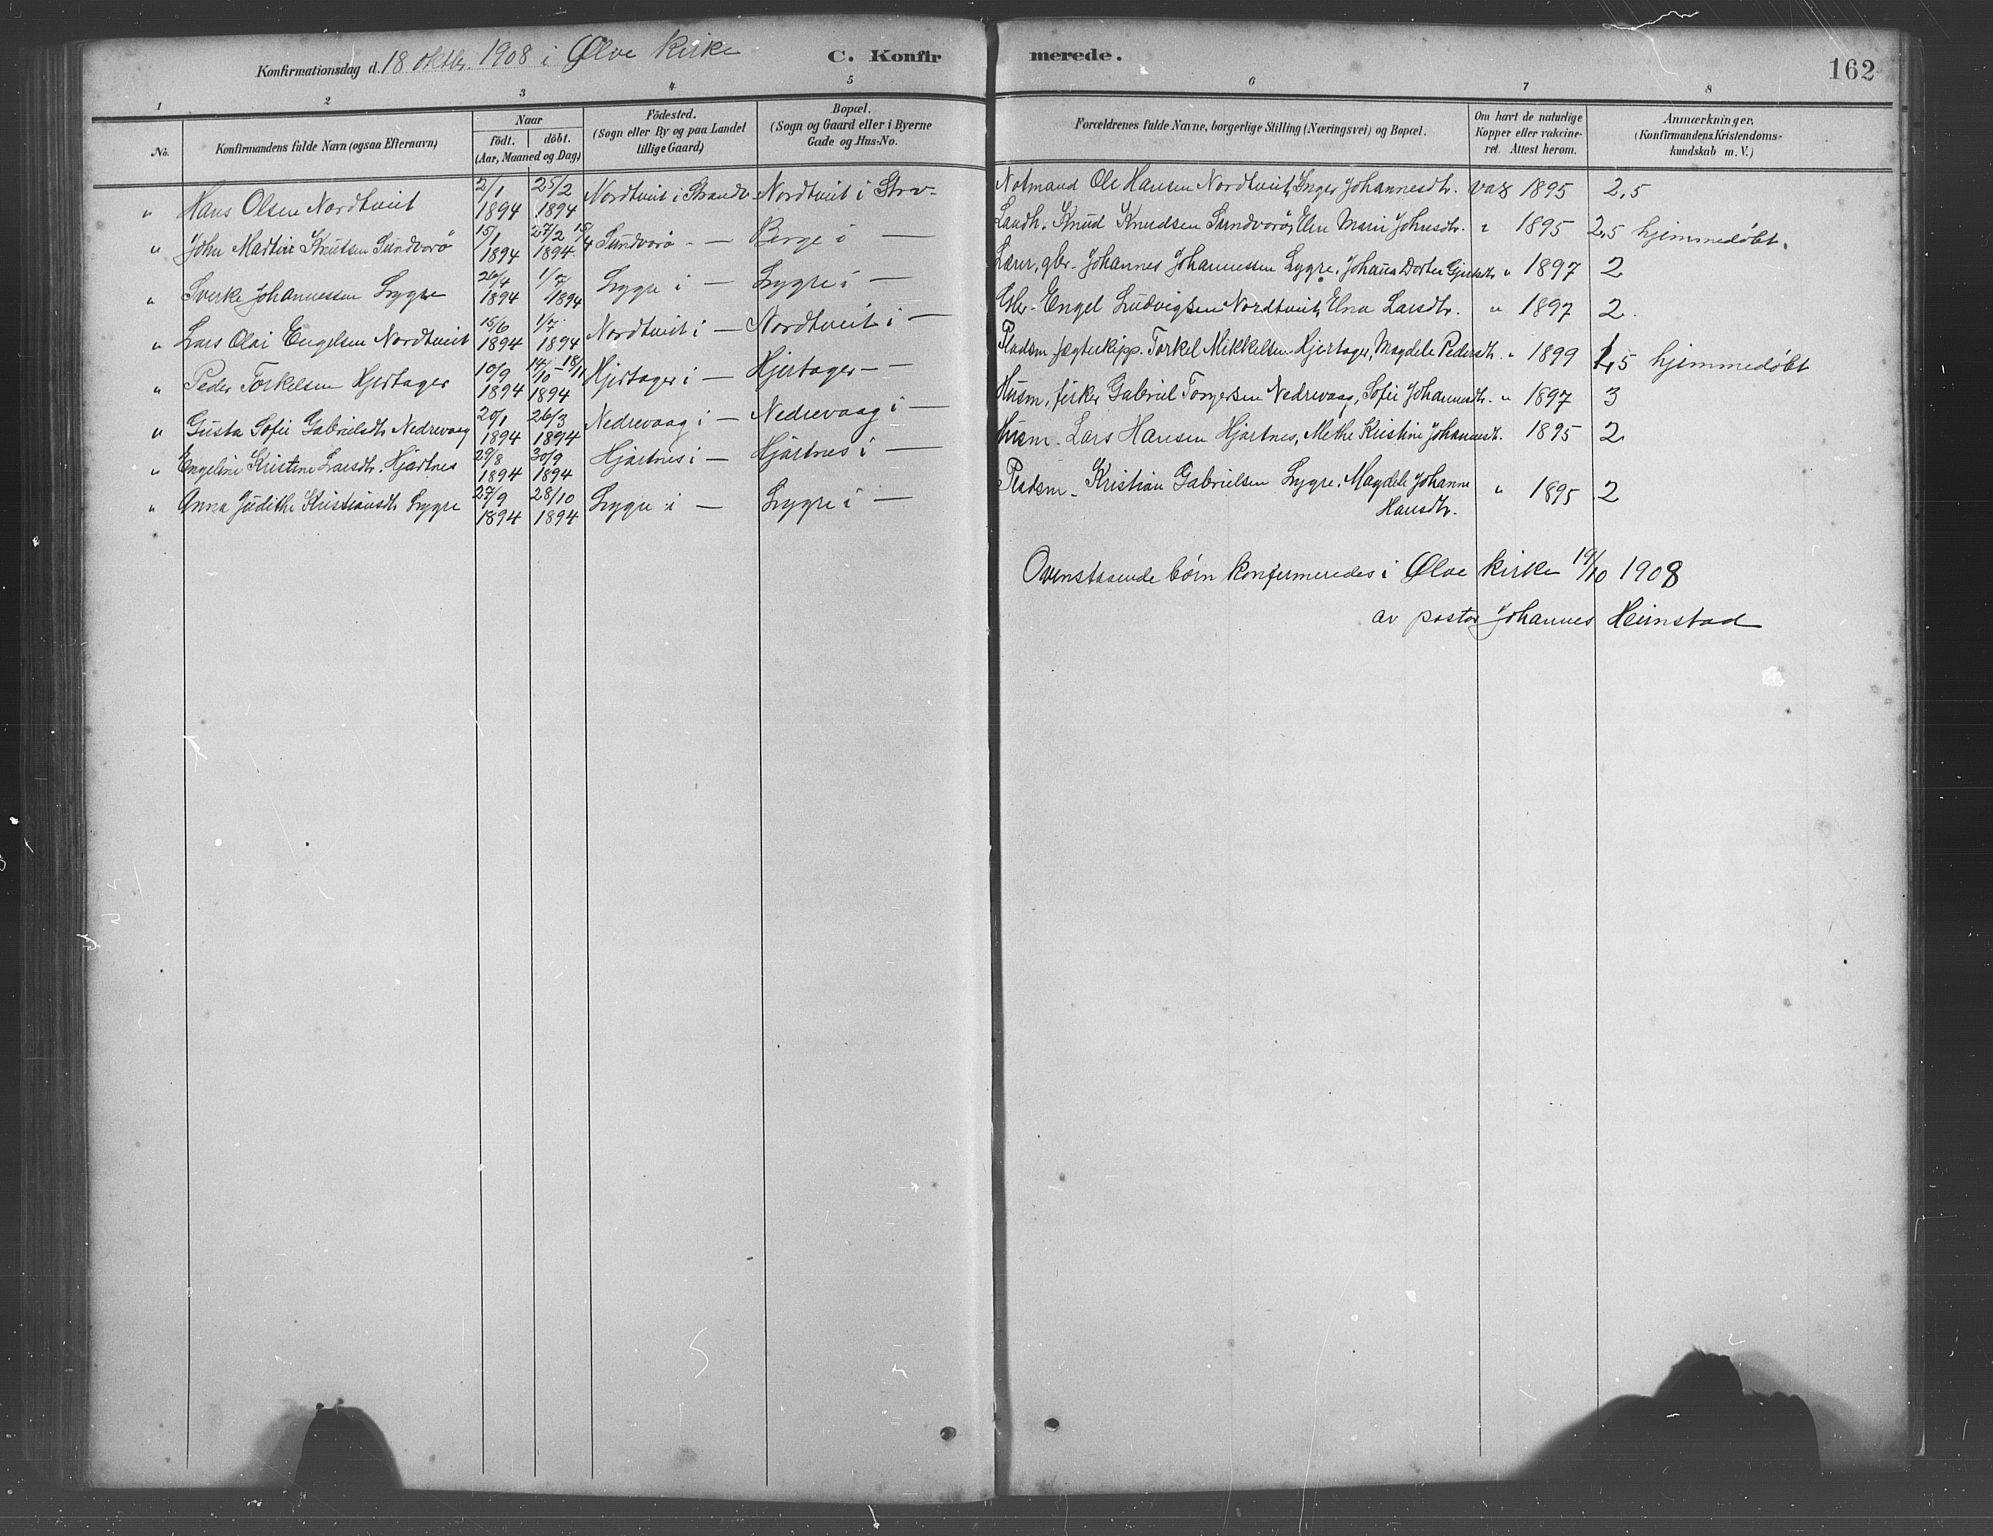 Konfirmationsdag d. 18 oktbr. 1908 i Ølve Kirke
C. Konfirmerede.
162
1 2 3 4 5 6 7 8
No. Konfirmandens fulde Navn (ogsaa Efternavn) Naar født. døbt. (Aar, Maaned og Dag) Födested. (Sogn eller By og paa Landet tillige Gaard) Bopæl. (Sogn og Gaard eller i Byerne Gade og Hus-No. Forældrenes fulde Navne, borgerlige Stilling (Næringsvei) og Bopæl. Om havt de naturlige Kopper eller vakcineret. Attest herom. Anmærkninger. (Konfirmandens Kristendomskundskab m. V.)
" Hans Olsen Nordtveit 2/1 1894 25/2 1894 Nordtveit i Strandv. Nordtveit i Strv. Notmand Ole Hansen Nordtveit, Inger Johannesdtr. vax 1895 2,5
" John Martin Knutsen Sundvorö 15/1 1894 27/2 15/4 1894 Sundvorö - — Berge i — Landh. Knud Knudsen Sundvorö, Elen Marie Johnsdtr. " 1895 2,5 hjemmedøbt.
" Sverke Johannessen Lygre 26/4 1894 1/7 1894 Lygre i — Lygre i — Lærer, gbr. Johannes Johannessen Lygre, Johanna Dortea " 1897 2
" Lars Olai Engelsen Nordtveit 15/6 1894 1/7 1894 Nordtveit i — Nordtveit i — Gbr. Engel Ludvigsen Nordtveit, Elna Larsdtr. " 1897 2.
" Peder Torkelsen Hjertager 10/9 1894 14/10 - 18/11 1894 Hjertager i — Hjertager - — Pladsm. jægteskipp. Torkel Mikkelsen Hjertager, Magdele Pedersdtr. " 1899 1,5 hjemmedøbt
" Gusta Sofie Gabrielsdtr. Nedrevaag 20/1 1894 26/3 1894 Nedrevaag i — Nedrevaag i — Husm. fisker Gabriel Torgersen Nedrevaag, Sofie Johannesdtr. " 1897 3
" Engeline Kristine Larsdtr. Hjartnes 29/8 1894 30/9 1894 Hjartnes i — Hjartnes i — Husm. Lars Hansen Hjartnes, Methe Kristine Johannesdtr. 1895 2
" Anna Judithe Kristiansdtr. Lygre 27/9 1894 28/10 1894 Lygre i — Lygre i — Pladsm. Kristian Gabrielsen Lygre, Magdele Johanne Hansdtr. " 1895 2
Ovenstaaende børn konfirmeredes i Ølve kirke 19/10 1908
av pastor Johannes Heimstad